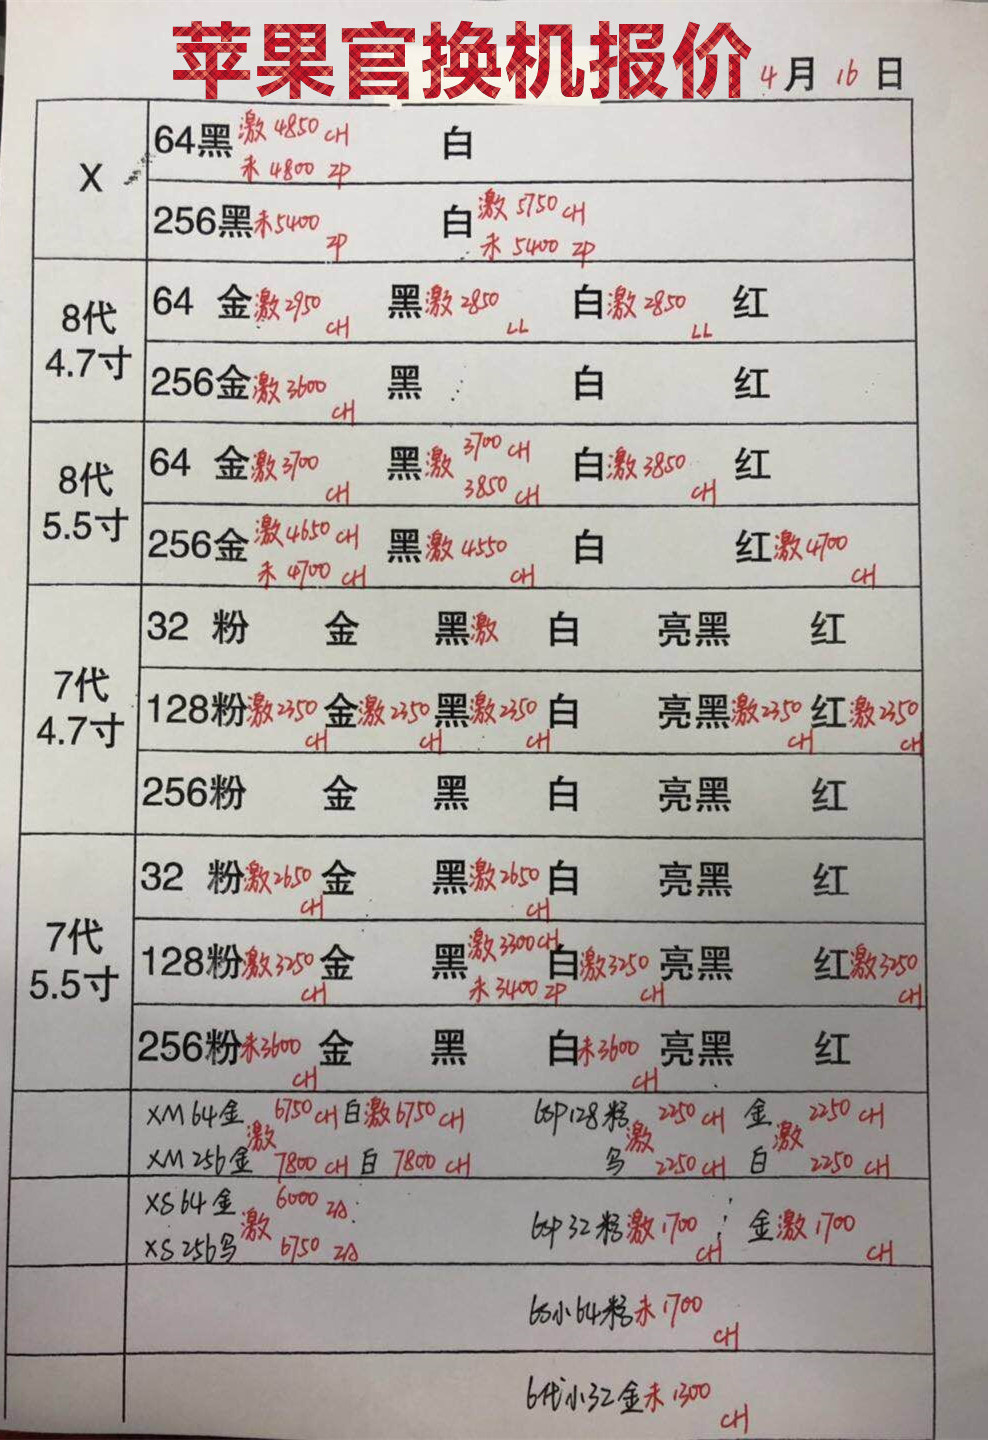 苹果官换机报价 4月16日
X
64黑 激4850 CH 白
未4800 ZP
256黑 未5400 ZP 白 激5750 CH
未5400 ZP
8代
4.7寸
64 金 激2950 CH 黑 激2850 LL 白 激2850 LL 红
256金 激3600 CH 黑 白 红
8代
5.5寸
64 金 激3700 CH 黑 激 3700 CH 白 激3850 CH 红
3850 CH
256金 激4650 CH 黑 激4550 CH 白 红 激4700 CH
未4700 CH
7代
4.7寸
32 粉 金 黑 激 白 亮黑 红
128粉 激2350 CH 金 激2350 CH 黑 激2350 CH 白 亮黑 激2350 CH 红 激2350 CH
256粉 金 黑 白 亮黑 红
7代
5.5寸
32 粉 激2650 CH 金 黑 激2650 CH 白 亮黑 红
128粉 激3250 CH 金 黑 激3300 CH 白 激3250 CH 亮黑 红 激3250 CH
未3400 ZP
256粉 未3600 CH 金 黑 白 未3600 CH 亮黑 红
XM 64金 激 6750 CH 白 激6750 CH 6SP 128粉 激 2250 CH 金 激 2250 CH
XM 256金 7800 CH 白 7800 CH 2250 CH 白 2250 CH
XS 64金 激 6000 ZA
XS 256 6750 ZA 6SP 32粉 激1700 CH 金 激1700 CH
6S小64粉 未1700 CH
6代小32金 未1300 CH